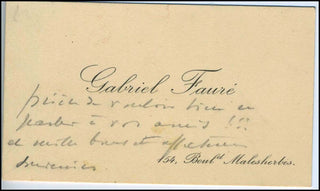 Gabriel Fauré
prière de vouloir bien en
parler à vos amis !!!
et mille bons et affectueux
souvenirs
154. Boul.ᵈ Malesherbes.